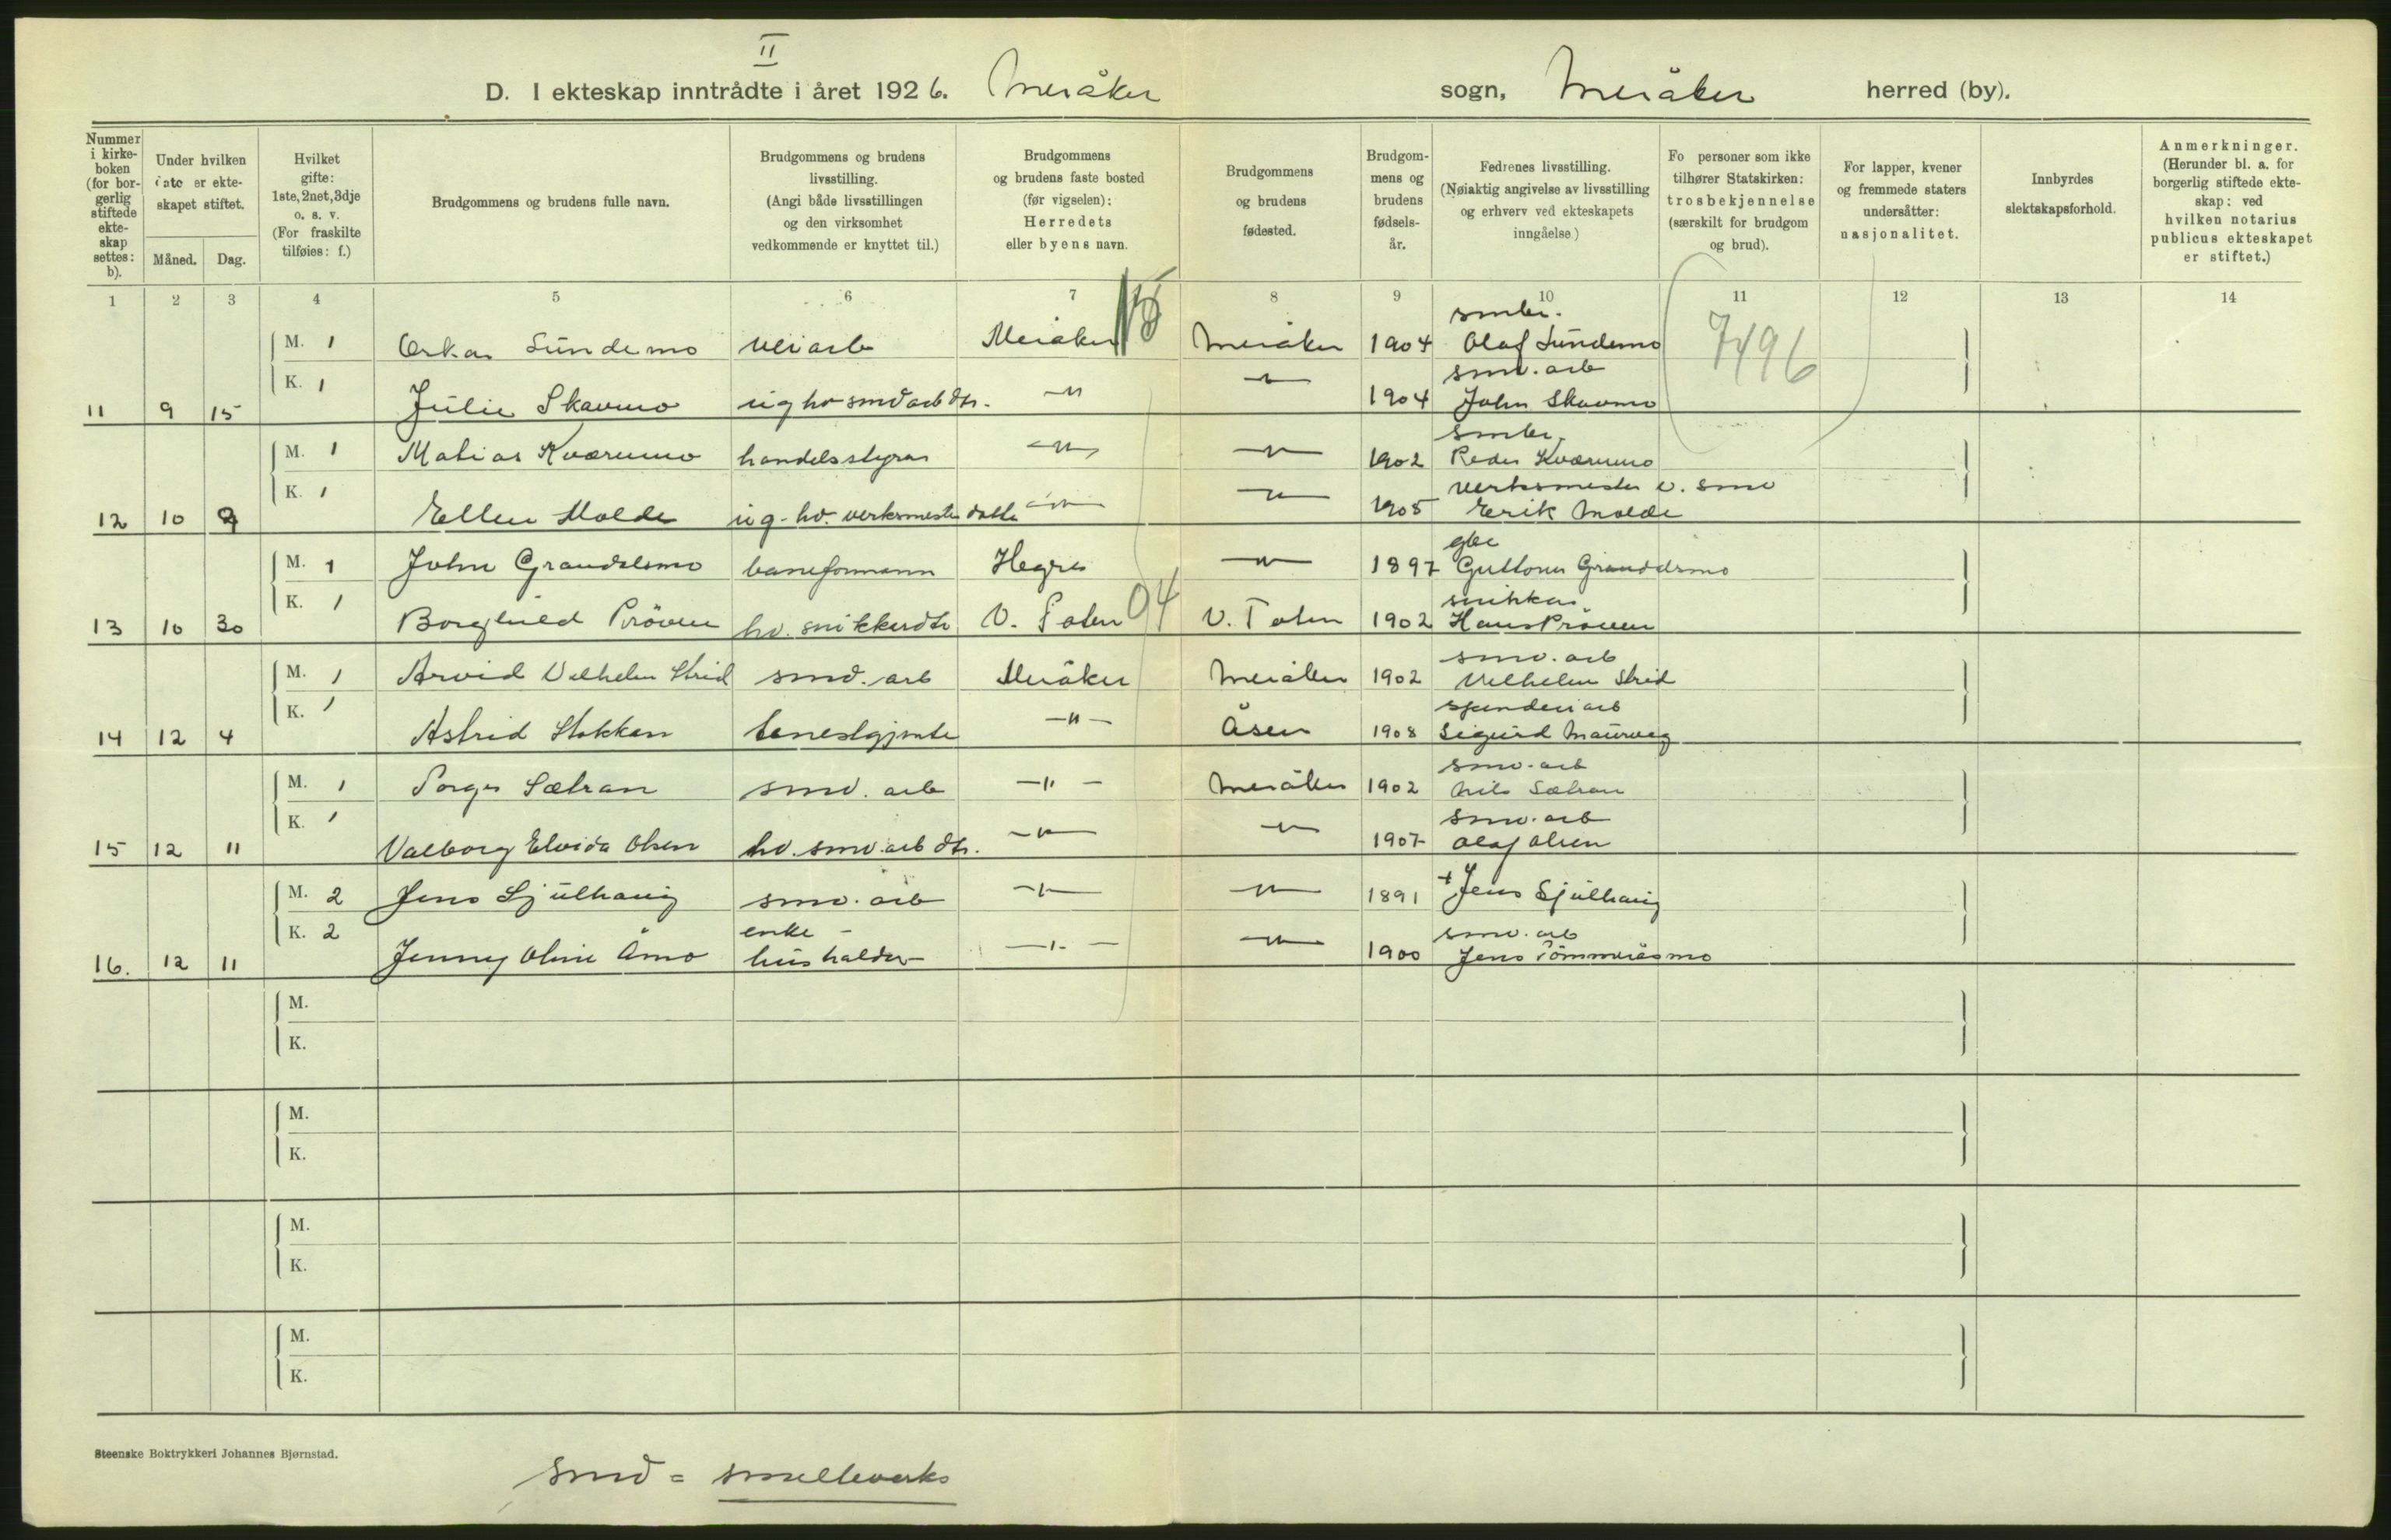 II
D. I ekteskap inntrådte i året 1926. Meråker sogn, Meråker herred (by).
Nummer i kirkeboken (for borgerlig stiftede ekteskap settes: b).
Under hvilken dato er ekteskapet stiftet.
Måned. Dag.
Hvilket gifte: 1ste, 2net, 3dje o. s. v. (For fraskilte tilføies: f.)
Brudgommens og brudens fulle navn.
Brudgommens og brudens livsstilling. (Angi både livsstillingen og den virksomhet vedkommende er knyttet til.)
Brudgommens og brudens faste bosted (før vigselen): Herredets eller byens navn.
Brudgommens og brudens fødested.
Brudgommens og brudens fødselsår.
Fedrenes livsstilling. (Nøiaktig angivelse av livsstilling og erhverv ved ekteskapets inngåelse.)
Fo personer som ikke tilhører Statskirken: trosbekjennelse (særskilt for brudgom og brud).
For lapper, kvener og fremmede staters undersåtter: nasjonalitet.
Innbyrdes slektskapsforhold.
Anmerkninger. (Herunder bl. a. for borgerlig stiftede ekteskap: ved hvilken notarius publicus ekteskapet er stiftet.)
1 2 3 4 5 6 7 8 9 10 11 12 13 14
smbr.
M. 1 Oskar Sundemo veiarb Meråker Meråker 1904 Olaf Sundemo 7496
smv. arb
11 9 15 K. 1 Julie Skavmo ug hv smv arb dtr. -"- -"- 1904 John Skavmo
smbr.
M. 1 Matias Kværnmo handelsstyrar -"- -"- 1902 Peder Kværnmo
verksmester v. smv
12 10 9 K. 1 Ellen Molde ug. hv. verksmester datter -"- -"- 1905 Erik Molde
gbr
M. 1 John Grandalsmo baneformann Hegra -"- 1897 Guttorm Grandalsmo
snikkar
13 10 30 K. 1 Borghild Prøven hv. snikkerdtr V. Toten 04 V. Toten 1902 Hans Prøven
smv. arb
M. 1 Arvid Vilhelm Strid smv. arb Meråker Meråker 1902 Vilhelm Strid
14 12 4 K. 1 Astrid Stokkan tenestgjente -"- Åsen 1908 Sigurd
smv. arb
M. 1 Torger Sætran smv. arb -"- Meråker 1902 Nils Sætran
smv. arb
15 12 11 K. 1 Valborg Elvida Olsen hv. smv. arb dtr. -"- -"- 1907 Olaf Olsen
M. 2 Jens Sjulhaug smv. arb -"- -"- 1891 + Jens Sjulhaug
enke - smv. arb
16. 12 11 K. 2 Jenny Oline Åmo hushalder -"- -"- 1900 Jens Tømmeråsmo
M.
K.
M.
K.
M.
K.
M.
K.
Steenske Boktrykkeri Johannes Bjørnstad.
smv = smelteverks